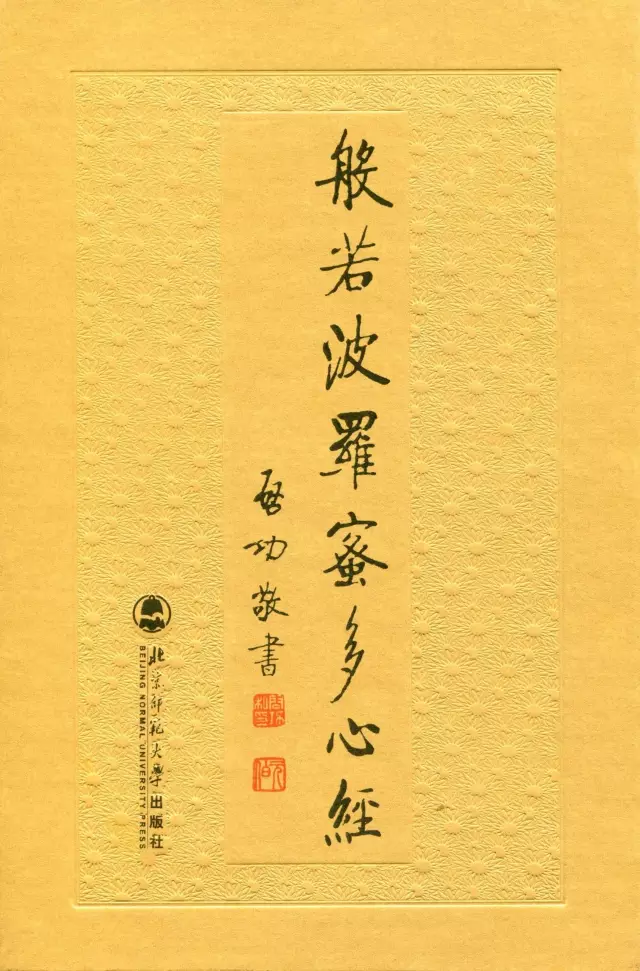 般若波羅蜜多心經
啓功敬書
北京師範大學出版社
BEIJING NORMAL UNIVERSITY PRESS